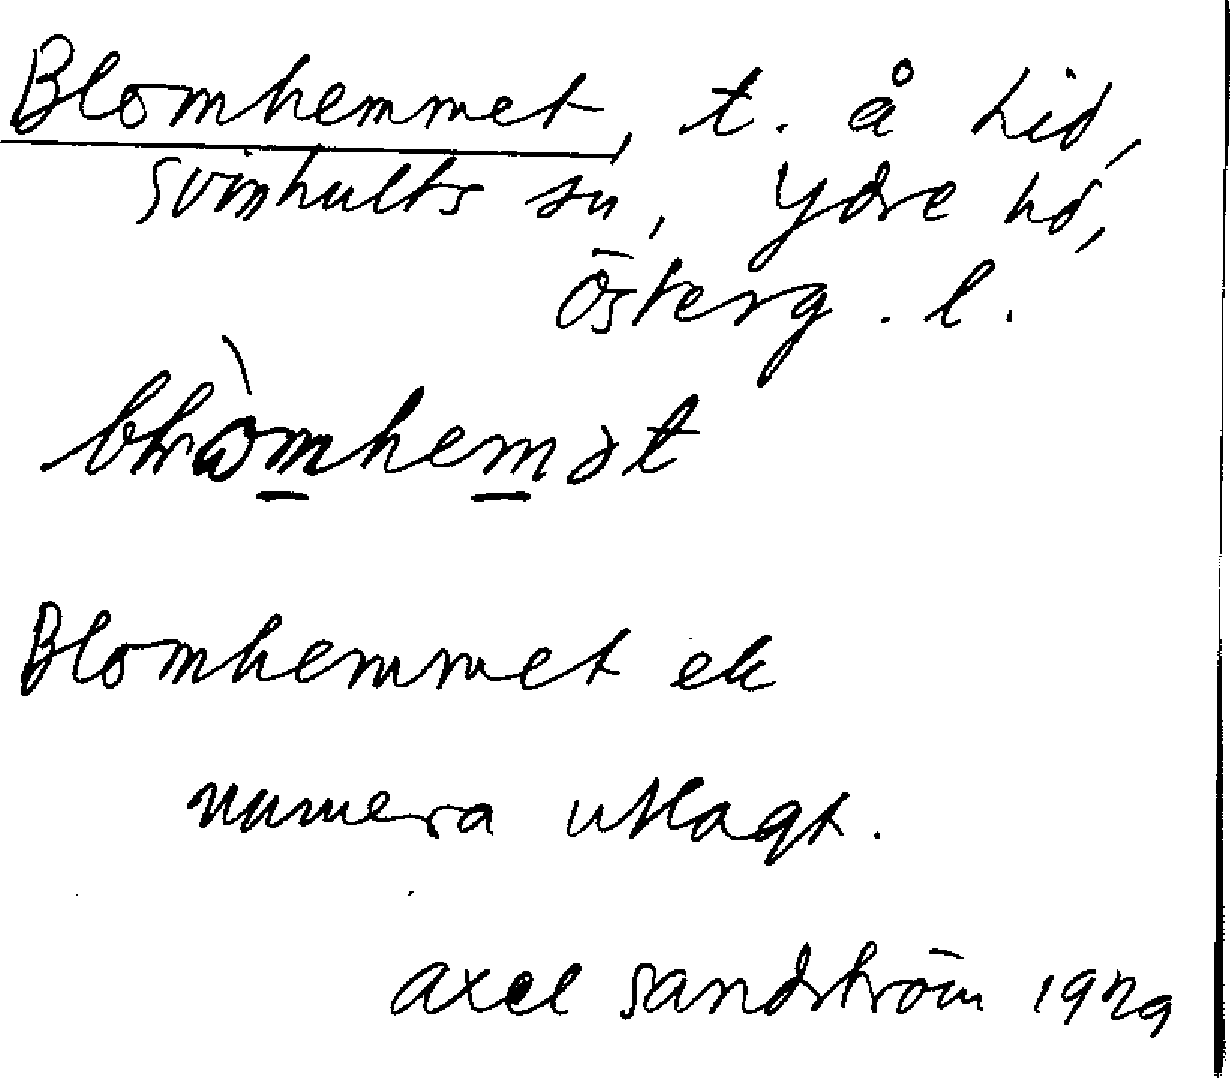 Blomhemmet, t. å Lid,
Svinhults sn, Ydre hd,
Österg. l.
Blomhemmet är
numera utlagt.
Axel Sandström 1929